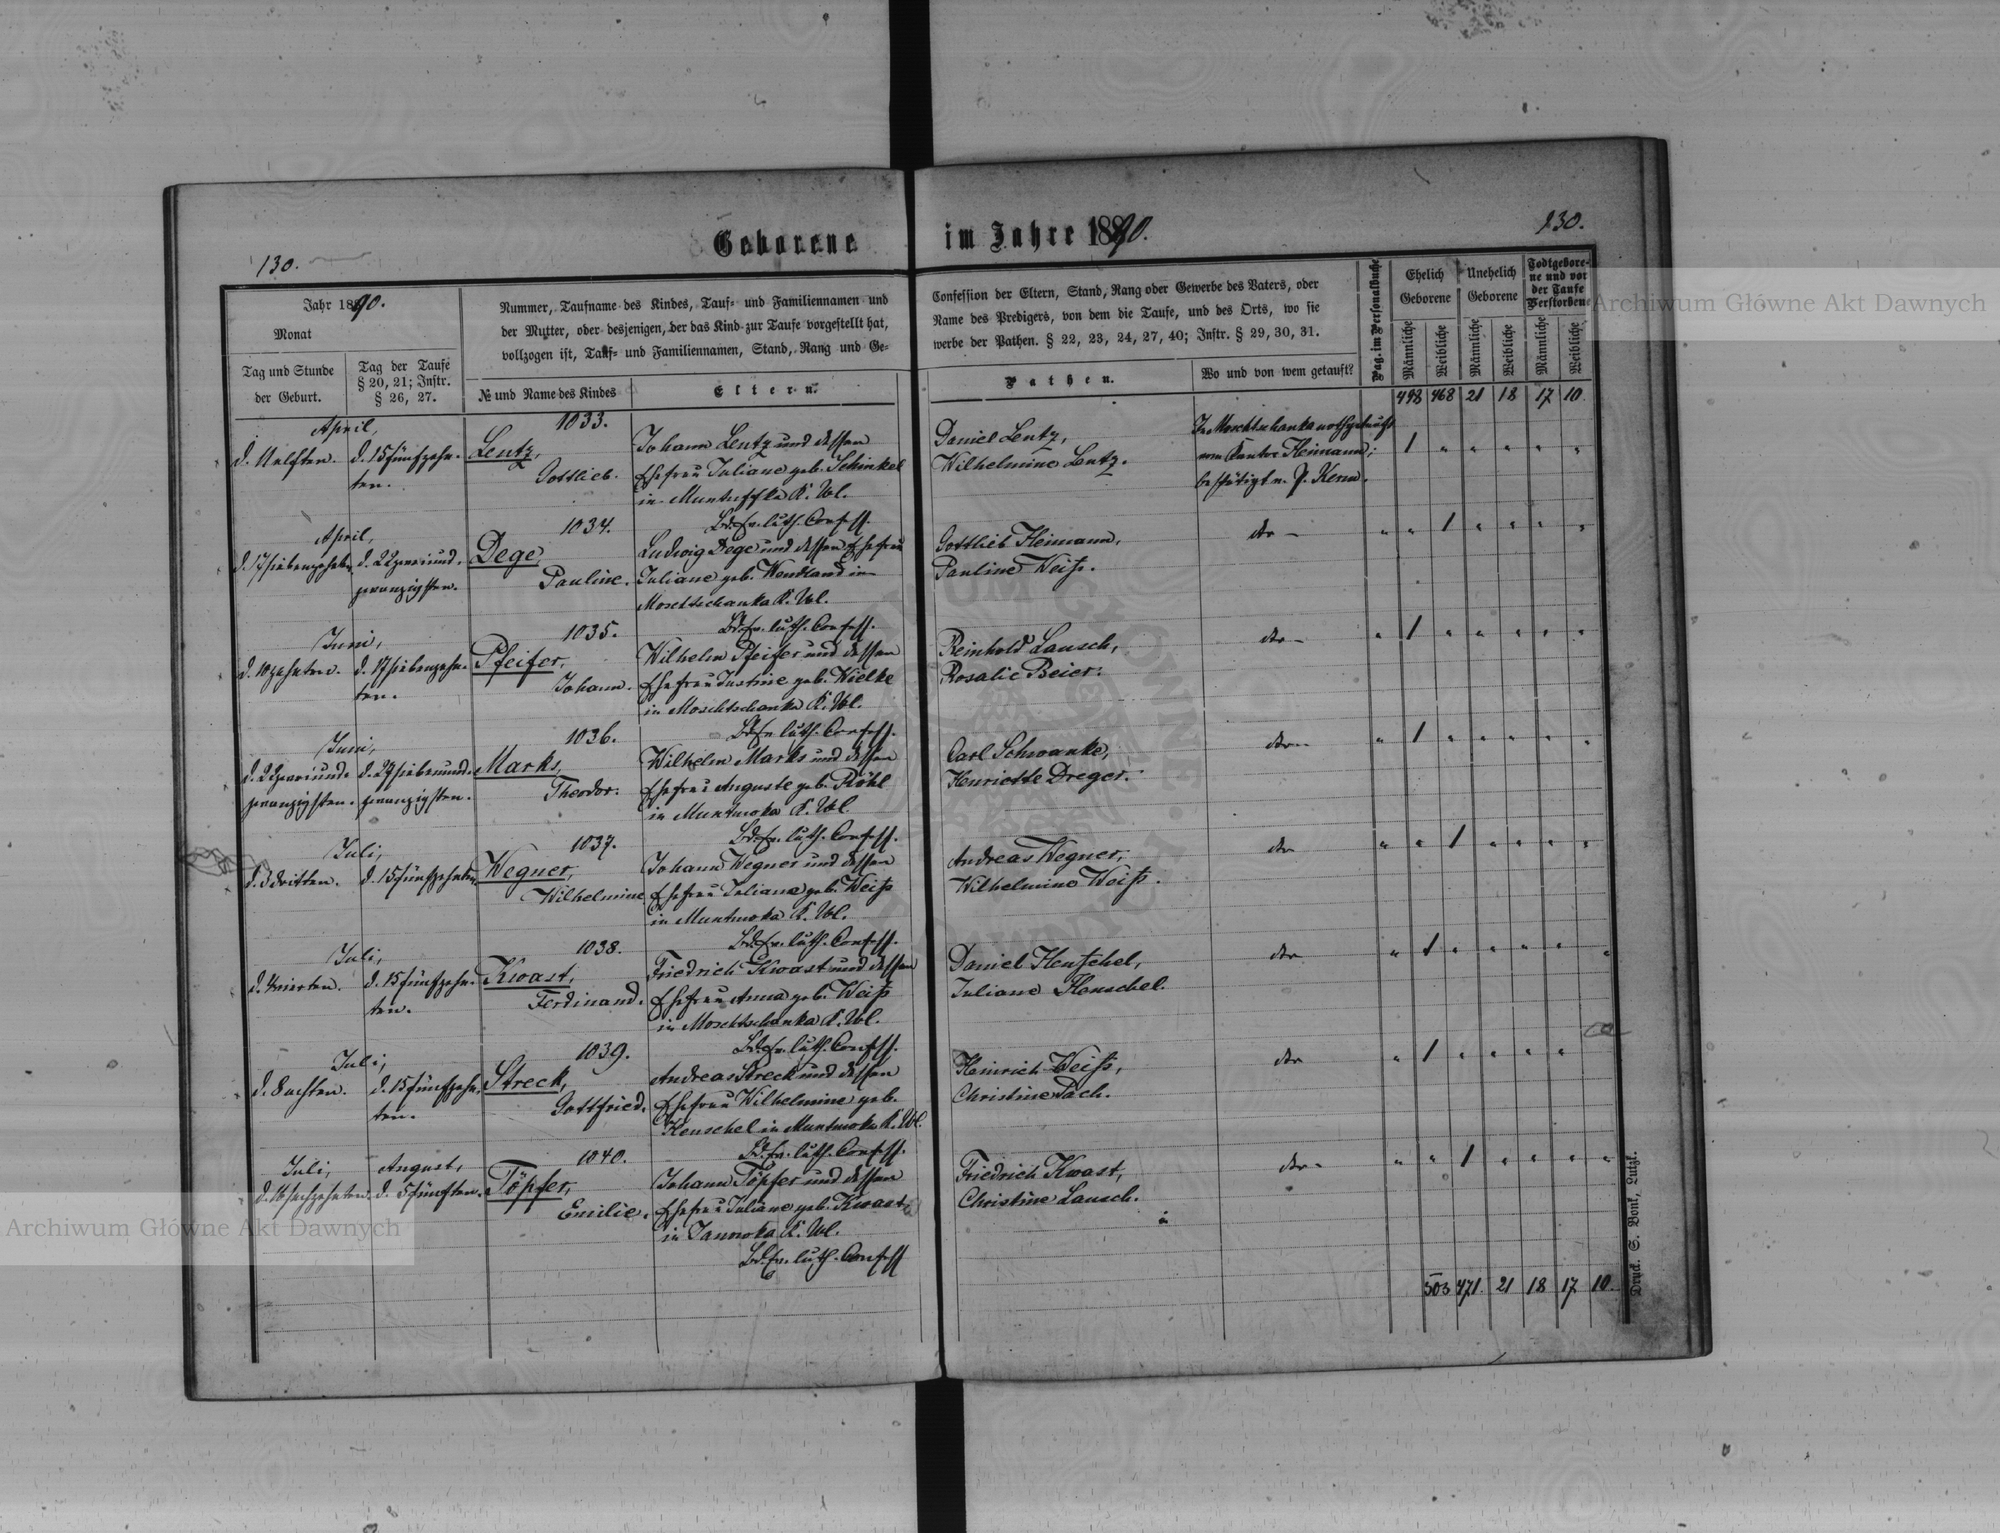 Geborene im Jahre 1890.
130.
130.
Jahr 1890.
Monat
Tag und Stunde
der Geburt.
Tag der Taufe
§ 20, 21; Instr.
§ 26, 27.
Nummer, Taufname des Kindes, Tauf- und Familiennamen und
der Mutter, oder desjenigen, der das Kind zur Taufe vorgestellt hat,
vollzogen ist, Tauf- und Familiennamen, Stand, Rang und Ge-
№ und Name des Kindes
Eltern.
Confession der Eltern, Stand, Rang oder Gewerbe des Vaters, oder
Name des Predigers, von dem die Taufe, und des Orts, wo sie
werbe der Pathen. § 22, 23, 24, 27, 40; Instr. § 29, 30, 31.
Pathen.
Wo und von wem getauft?
Pag. im Personalbuche
Ehelich
Geborene
Unehelich
Geborene
Todtgebore-
ne und vor
der Taufe
Verstorbene
Männliche
Weibliche
Männliche
Weibliche
Männliche
Weibliche
498 468 21 18 17 10.
April,
d. 11 elften.
d. 15 fünfzehn-
ten.
1033.
Lentz,
Gottlieb.
Johann Lentz und dessen
Ehefrau Juliane geb. Schinkel
in K. Wl.
Bd. Ev. luth. Confess.
Daniel Lentz,
Wilhelmine Lentz.
In Moschtschanka nothgetauft
vom Kantor Heimann;
bestätigt v. P. Kern.
1 " " " " "
April,
d. 17 siebenzehnten
d. 22 zweiund-
zwanzigsten.
1034.
Dege,
Pauline.
Ludwig Dege und dessen Ehefrau
Juliane geb. Wendland in
Moschtschanka K. Wl.
Bd. Ev. luth. Confess.
Gottlieb Heimann,
Pauline Weiß.
dto –
" " 1 " " " "
Juni,
d. 10 zehnten.
d. 17 siebenzehn-
ten.
1035.
Pfeifer,
Johann.
Wilhelm Pfeifer und dessen
Ehefrau Justine geb. Wielke
in Moschtschanka K. Wl.
Bd. Ev. luth. Confess.
Reinhold Lausch,
Rosalie Beier.
dto –
" 1 " " " " "
Juni,
d. 22 zweiund-
zwanzigsten.
d. 27 siebenund-
zwanzigsten.
1036.
Marks,
Theodor.
Wilhelm Marks und dessen
Ehefrau Auguste geb. Röhl
in Muntwoka K. Wl.
Bd. Ev. luth. Confess.
Carl Schwanke,
Henriette Dreger.
dto –
" 1 " " " " "
Juli,
d. 3 dritten.
d. 15 fünfzehnten
1037.
Wegner,
Wilhelmine
Johann Wegner und dessen
Ehefrau Juliane geb. Weiß
in Muntwoka K. Wl.
Bd. Ev. luth. Confess.
Andreas Wegner,
Wilhelmine Weiß.
dto
" " 1 " " " "
Juli,
d. 4 vierten.
d. 15 fünfzehn-
ten.
1038.
Kwast,
Ferdinand.
Friedrich Kwast und dessen
Ehefrau Anna geb. Weiß
in Moschtschanka K. Wl.
Bd. Ev. luth. Confess.
Daniel Henschel,
Juliane Henschel.
dto
" 1 " " " " "
Juli,
d. 8 achten.
d. 15 fünfzehn-
ten.
1039.
Streck,
Gottfried.
Andreas Streck und dessen
Ehefrau Wilhelmine geb.
Henschel in Muntwoka K. Wl.
Bd. Ev. luth. Confess.
Heinrich Weiß,
Christine Pach.
dto
" 1 " " " "
Juli,
d. 16 sechzehnten
August,
d. 5 fünften.
1040.
Töpfer,
Emilie.
Johann Töpfer und dessen
Ehefrau Juliane geb. Kwast
in Janowka K. Wl.
Bd. Ev. luth. Confess
Friedrich Kwast,
Christine Lausch.
dto –
" " 1 " " " "
503 471. 21 18 17 10.
Druck. S. Bonk, Lutzk.
Archiwum Główne Akt Dawnych
Archiwum Główne Akt Dawnych